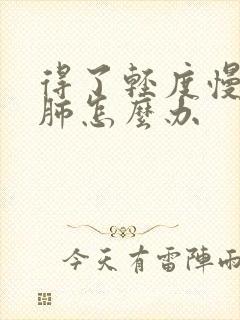 得了轻度慢
肺怎麼办
今天有雷陣雨